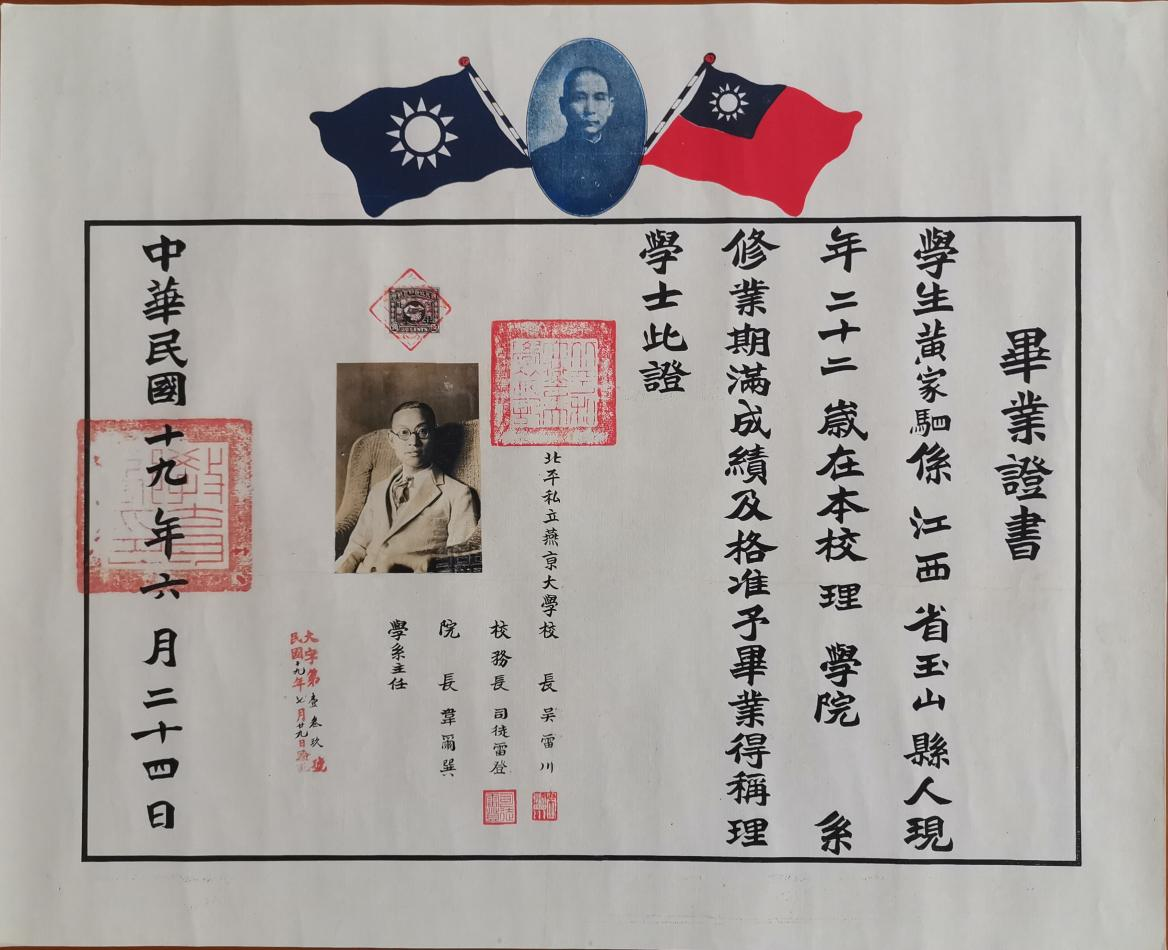 畢業證書
學生黃家駟係江西省玉山縣人現
年二十二歲在本校理學院系
修業期滿成績及格准予畢業得稱理
學士此證
北平私立燕京大學校長吳雷川
校務長司徒雷登
院長韋爾巽
學系主任
大字第壹叁玖號
民國十九年七月廿九日驗訖
中華民國十九年六月二十四日